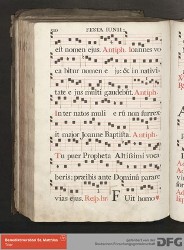 FESTA IUNII.
est nomen ejus. Antiph. Ioannes vo
ca bitur nomen e jus: & in nativi-
tate e jus multi gaudebunt. Antiph.
In ter natos muli e rū non surrex
it major Joanne Baptista. Antiph.
Tu puer Propheta Altissimi voca
beris: præibis ante Dominū parare
vias ejus. Resp. br. Fuit homo
DFG